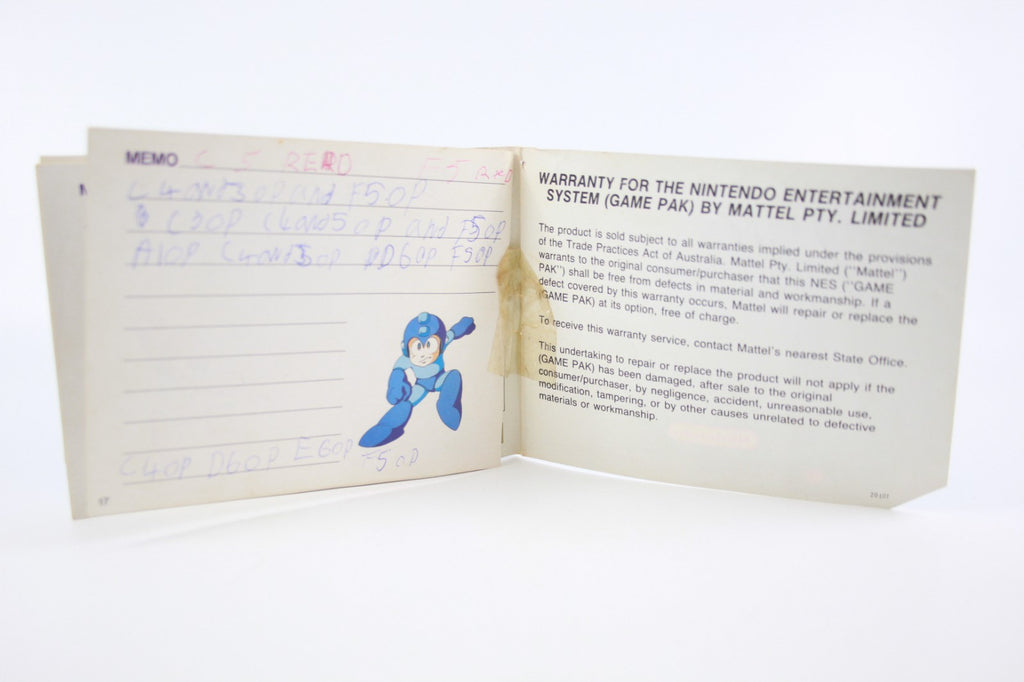 MEMO C 5 RERD F5 RXD
C4and30P and F50P
C30P C4and50P and F50P
A10P C4and50P D60P F50P
C40P D60P E60P F50P
17
WARRANTY FOR THE NINTENDO ENTERTAINMENT
SYSTEM (GAME PAK) BY MATTEL PTY. LIMITED
The product is sold subject to all warranties implied under the provisions
of the Trade Practices Act of Australia. Mattel Pty. Limited (''Mattel'')
warrants to the original consumer/purchaser that this NES (''GAME
PAK'') shall be free from defects in material and workmanship. If a
defect covered by this warranty occurs, Mattel will repair or replace the
(GAME PAK) at its option, free of charge.
To receive this warranty service, contact Mattel's nearest State Office.
This undertaking to repair or replace the product will not apply if the
(GAME PAK) has been damaged, after sale to the original
consumer/purchaser, by negligence, accident, unreasonable use,
modification, tampering, or by other causes unrelated to defective
materials or workmanship.